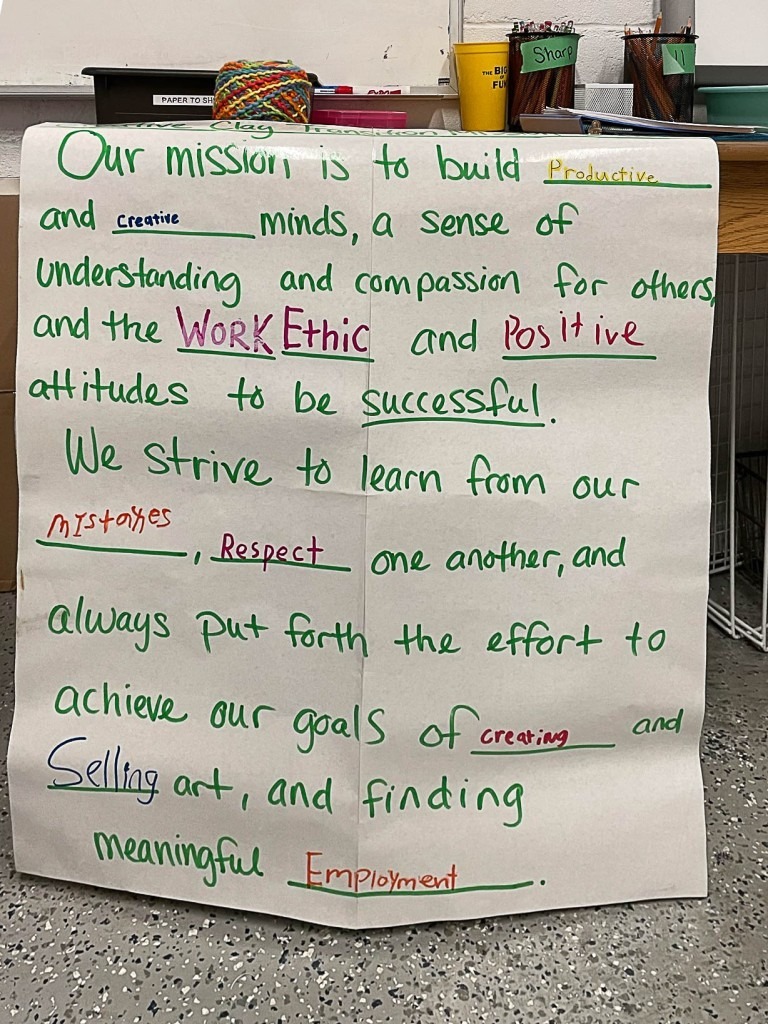 PAPER TO SH
THE BIG
OF
FUN
Sharp
Clay Transition
Our mission is to build Productive
and creative minds, a sense of
understanding and compassion for others,
and the WORK Ethic and Positive
attitudes to be successful.
We strive to learn from our
mistakes, Respect one another, and
always put forth the effort to
achieve our goals of creating and
Selling art, and finding
meaningful Employment.